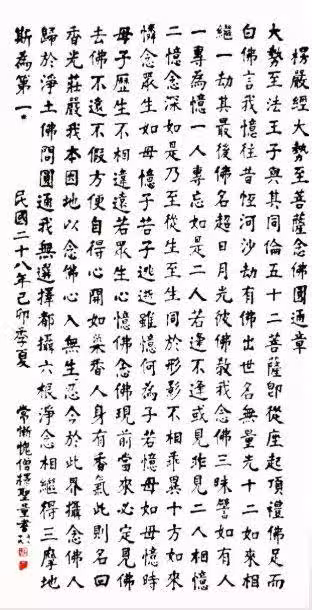 楞嚴經大勢至菩薩念佛圓通章
大勢至法王子與其同倫五十二菩薩即從座起頂禮佛足而
白佛言我憶往昔恒河沙劫有佛出世名無量光十二如來相
繼一劫其最後佛名超日月光彼佛教我念佛三昧譬如有人
一專為憶一人專忘如是二人若逢不逢或見非見二人相憶
二憶念深如是乃至從生至生同於形影不相乖異十方如來
憐念眾生如母憶子若子逃逝雖憶何為子若憶母如母憶時
母子歷生不相違遠若眾生心憶佛念佛現前當來必定見佛
去佛不遠不假方便自得心開如染香人身有香氣此則名曰
香光莊嚴我本因地以念佛心入無生忍今於此界攝念佛人
歸於淨土佛問圓通我無選擇都攝六根淨念相繼得三摩地
斯為第一。 民國二十八年己卯季夏
常慚愧僧釋聖量書